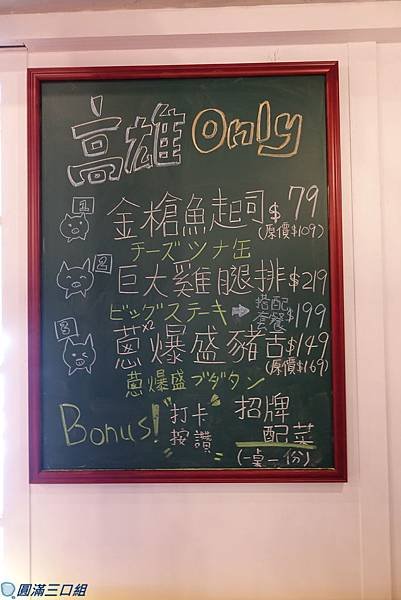 高雄 Only
金槍魚起司 $79
(原價$109)
チーズツナ缶
巨大雞腿排 $219
ビッグステーキ ➡ 搭配套餐 $199
蔥爆盛豬舌 $149
x2
(原價$169)
蔥爆盛ブダタン
Bonus! "打卡按讚" 招牌配菜
(一桌一份)
圓滿三口組